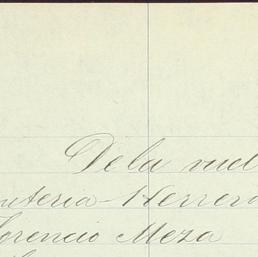 De la vuel
nteria - Herrera
lorencio Meza